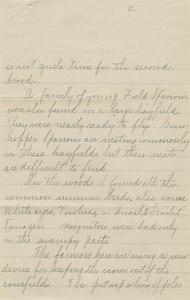 2
is not quite time for the second
brood.
A family of young Field Sparrows
were also found in a large hayfield
they were nearly ready to fly. Grass
hopper Sparrows are nesting commonly
in these hayfields but their nests
are difficult to find.
In the woods I found all the
common summer birds, also several
White eyes, Towhees, a Scarlet
Tanager. Mosquitoes were bad only
in the swampy parts.
The farmers here are using a new
device for keeping the crows out of the
cornfields. They put up a line of poles